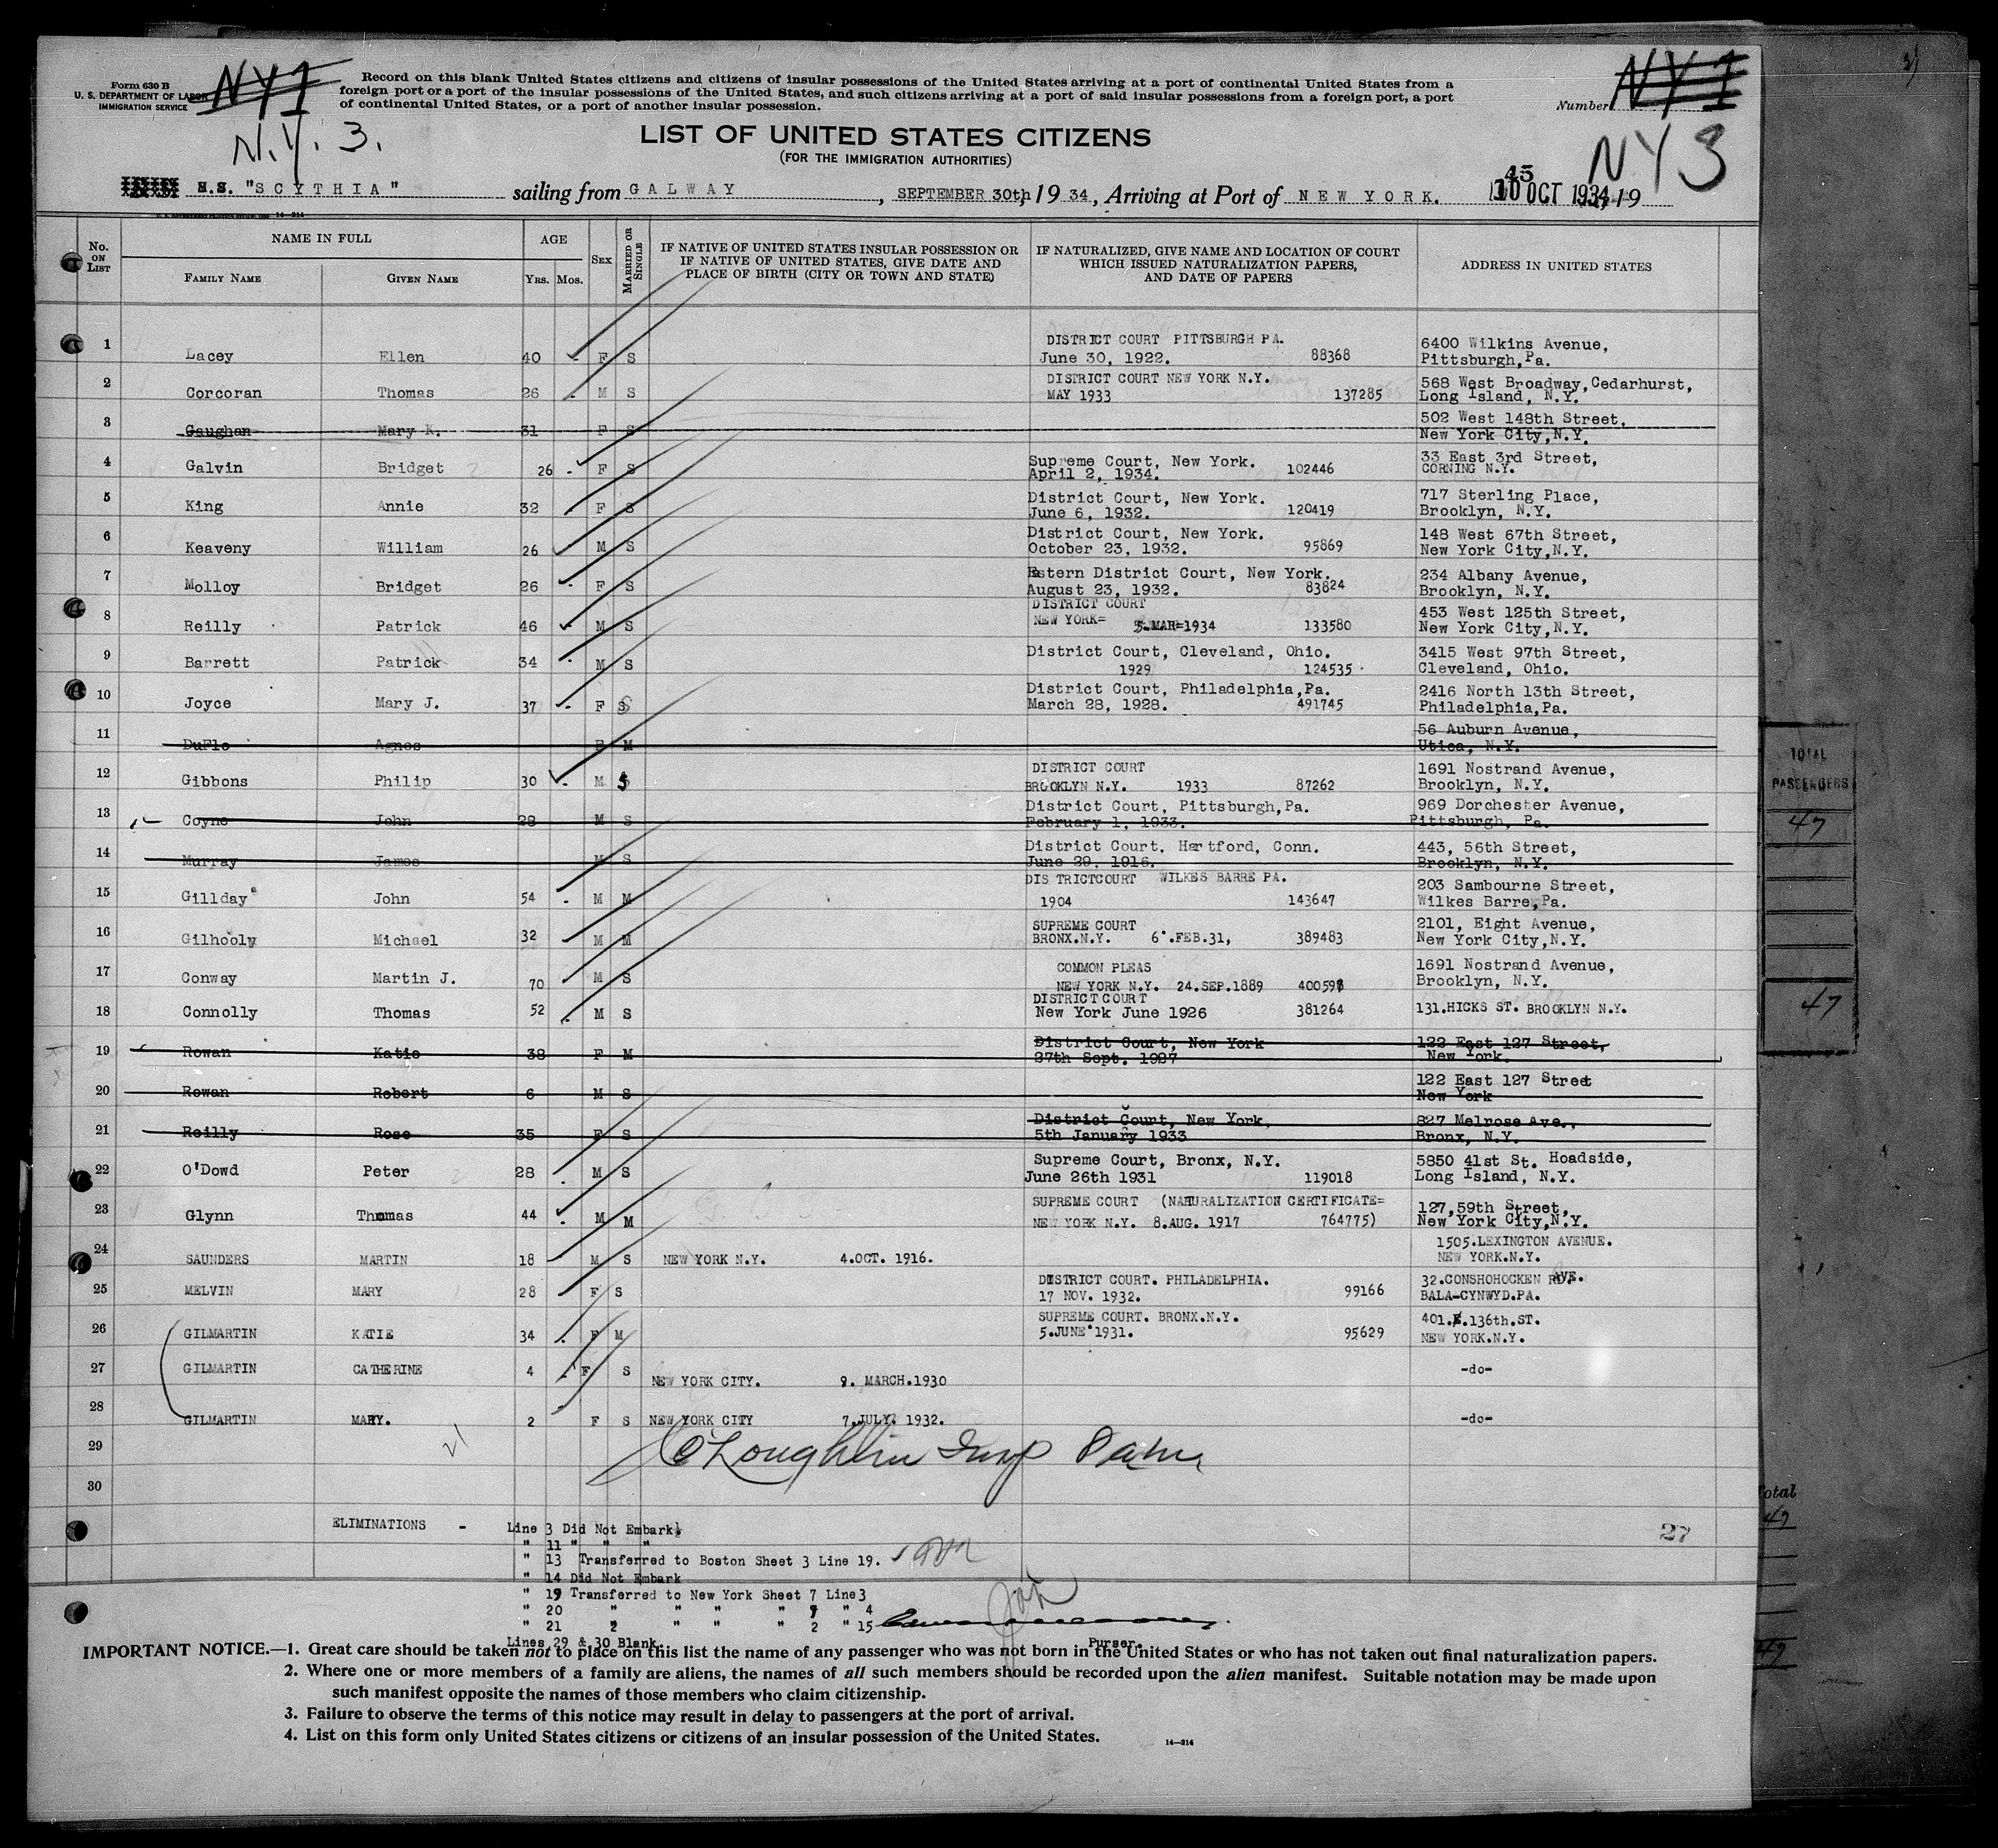 Form 630 B
U. S. DEPARTMENT OF LABOR
IMMIGRATION SERVICE
NY1
N.Y. 3.
Record on this blank United States citizens and citizens of insular possessions of the United States arriving at a port of continental United States from a
foreign port or a port of the insular possessions of the United States, and such citizens arriving at a port of said insular possessions from a foreign port, a port
of continental United States, or a port of another insular possession.
Number NY1
NY3
LIST OF UNITED STATES CITIZENS
(FOR THE IMMIGRATION AUTHORITIES)
S.S. "SCYTHIA" sailing from GALWAY, SEPTEMBER 30th, 19 34, Arriving at Port of NEW YORK. OCT 1934, 19
14-214
No. ON LIST
NAME IN FULL
FAMILY NAME GIVEN NAME
AGE
Yrs. Mos.
SEX
MARRIED OR SINGLE
IF NATIVE OF UNITED STATES INSULAR POSSESSION OR
IF NATIVE OF UNITED STATES, GIVE DATE AND
PLACE OF BIRTH (CITY OR TOWN AND STATE)
IF NATURALIZED, GIVE NAME AND LOCATION OF COURT
WHICH ISSUED NATURALIZATION PAPERS,
AND DATE OF PAPERS
ADDRESS IN UNITED STATES
DISTRICT COURT PITTSBURGH PA. 6400 Wilkins Avenue,
1 Lacey Ellen 40 - F S June 30, 1922. 88368 Pittsburgh,Pa.
DISTRICT COURT NEW YORK N.Y. 568 West Broadway,Cedarhurst,
2 Corcoran Thomas 26 - M S MAY 1933 137285 Long Island, N.Y.
502 West 148th Street,
3 Gaughan Mary K. 31 F S New York City,N.Y.
Supreme Court, New York. 33 East 3rd Street,
4 Galvin Bridget 26 - F S April 2, 1934. 102446 CORNING N.Y.
District Court, New York. 717 Sterling Place,
5 King Annie 32 F S June 6, 1932. 120419 Brooklyn, N.Y.
District Court, New York. 148 West 67th Street,
6 Keaveny William 26 M S October 23, 1932. 95869 New York City,N.Y.
Estern District Court, New York. 234 Albany Avenue,
7 Molloy Bridget 26 - F S August 23, 1932. 83824 Brooklyn, N.Y.
DISTRICT COURT 453 West 125th Street,
8 Reilly Patrick 46 - M S NEW YORK= 5-MAR=1934 133580 New York City,N.Y.
District Court, Cleveland, Ohio. 3415 West 97th Street,
9 Barrett Patrick 34 - M S 1929 124535 Cleveland, Ohio.
District Court, Philadelphia,Pa. 2416 North 13th Street,
10 Joyce Mary J. 37 - F S March 28, 1928. 491745 Philadelphia,Pa.
56 Auburn Avenue,
11 DuFlo Agnes F M Utica, N.Y.
DISTRICT COURT 1691 Nostrand Avenue,
12 Gibbons Philip 30 - M S BROOKLYN N.Y. 1933 87262 Brooklyn, N.Y.
District Court, Pittsburgh,Pa. 969 Dorchester Avenue,
13 Coyne John 28 M S February 1, 1933. Pittsburgh, Pa.
District Court, Hartford, Conn. 443, 56th Street,
14 Murray James M S June 29, 1916. Brooklyn, N.Y.
DISTRICTCOURT WILKES BARRE PA. 203 Sambourne Street,
15 Gillday John 54 - M M 1904 143647 Wilkes Barre,Pa.
SUPREME COURT 2101, Eight Avenue,
16 Gilhooly Michael 32 M M BRONX.N.Y. 6.FEB.31, 389483 New York City,N.Y.
COMMON PLEAS 1691 Nostrand Avenue,
17 Conway Martin J. 70 M S NEW YORK N.Y. 24.SEP.1889 Brooklyn, N.Y.
DISTRICT COURT
18 Connolly Thomas 52 - M S New York June 1926 381264 131.HICKS ST. BROOKLYN N.Y.
District Court, New York 122 East 127 Street,
19 Rowan Katie 38 F M 27th Sept. 1927 New York.
122 East 127 Street
20 Rowan Robert 6 M S New York
District Court, New York. 827 Melrose Ave.,
21 Reilly Rose 35 F S 5th January 1933 Bronx, N.Y.
Supreme Court, Bronx, N.Y. 5850 41st St. Hoadside,
22 O'Dowd Peter 28 M S June 26th 1931 119018 Long Island, N.Y.
SUPREME COURT (NATURALIZATION CERTIFICATE= 127,59th Street,
23 Glynn Thomas 44 - M M NEW YORK N.Y. 8.AUG. 1917 764775) New York City,N.Y.
1505.LEXINGTON AVENUE.
24 SAUNDERS MARTIN 18 M S NEW YORK N.Y. 4.OCT. 1916. NEW YORK.N.Y.
DISTRICT COURT. PHILADELPHIA. 32.CONSHOHOCKEN AVE.
25 MELVIN MARY 28 F S 17 NOV. 1932. 99166 BALA-CYNWYD.PA.
SUPREME COURT. BRONX.N.Y. 401.E.136th.ST.
26 GILMARTIN KATIE 34 - F M 5.JUNE 1931. 95629 NEW YORK.N.Y.
27 GILMARTIN CATHERINE 4 - F S NEW YORK CITY. 9. MARCH.1930 -do-
28 GILMARTIN MARY. 2 F S NEW YORK CITY 7.JULY. 1932. -do-
29 O'Loughlin Insp
21
30
27
ELIMINATIONS - Line 3 Did Not Embark.
" 11 " " "
" 13 Transferred to Boston Sheet 3 Line 19.
" 14 Did Not Embark
" 19 Transferred to New York Sheet 7 Line3
" 20 " " " " 7 " 4
" 21 " " " " 2 " 15
Lines 29 & 30 Blank.
Purser.
IMPORTANT NOTICE.—1. Great care should be taken not to place on this list the name of any passenger who was not born in the United States or who has not taken out final naturalization papers.
2. Where one or more members of a family are aliens, the names of all such members should be recorded upon the alien manifest. Suitable notation may be made upon
such manifest opposite the names of those members who claim citizenship.
3. Failure to observe the terms of this notice may result in delay to passengers at the port of arrival.
4. List on this form only United States citizens or citizens of an insular possession of the United States.
14-214
TOTAL
PASSENGERS
47
47
Total